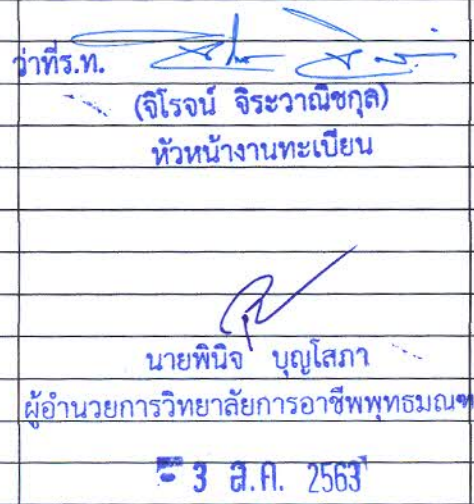 ว่าที่ร.ท.
(จิโรจน์ จิระวาณิชกุล)
หัวหน้างานทะเบียน
นายพินิจ บุญโสภา
ผู้อำนวยการวิทยาลัยการอาชีพพุทธมณฑ
- 3 ส.ค. 2563